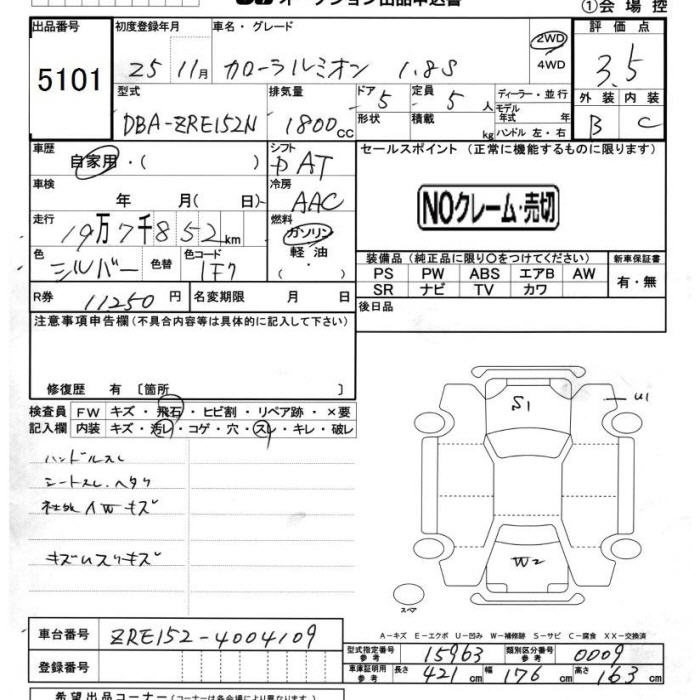 オークション出品申込書
①会場控
出品番号
5101
初度登録年月
25 11月
車名・グレード
カローラルミオン 1.8S
2WD
4WD
評価点
3.5
外装 内装
B C
型式
DBA-ZRE152N
排気量
1800cc
ドア
5
形状
定員
5人
積載
kg
ディーラー・並行
モデル
年式 年
ハンドル 左・右
車歴
自家用・( )
シフト
AT
車検
年 月( 日)
冷房
AAC
走行
19万7千852km
燃料
ガソリン
軽油
・( )
色
シルバー
色替
色コード
1F7
R券
11250円
名変期限 月 日
セールスポイント(正常に機能するものに限ります)
NOクレーム・売切
装備品(純正品に限り○をつけてください)
新車保証書
PS PW ABS エアB AW
SR ナビ TV カワ
有・無
後日品
注意事項申告欄(不具合内容等は具体的に記入して下さい)
修復歴 有 〔箇所 〕
検査員
記入欄
FW キズ・飛石・ヒビ割・リペア跡・×要
内装 キズ・汚レ・コゲ・穴・スレ・キレ・破レ
ハンドルスレ
シートスレ.ヘタリ
キズ
S1
U1
W2
スペア
A-キズ E-エクボ U-凹み W-補修跡 S-サビ C-腐食 XX-交換済
車台番号
ZRE152-4004109
登録番号
型式指定番号
参考
15963
類別区分番号
参考
0009
車庫証明用
参考
長さ
421cm
幅
176cm
高さ
163cm
希望出品コーナー(コーナーは各会場により異なります)